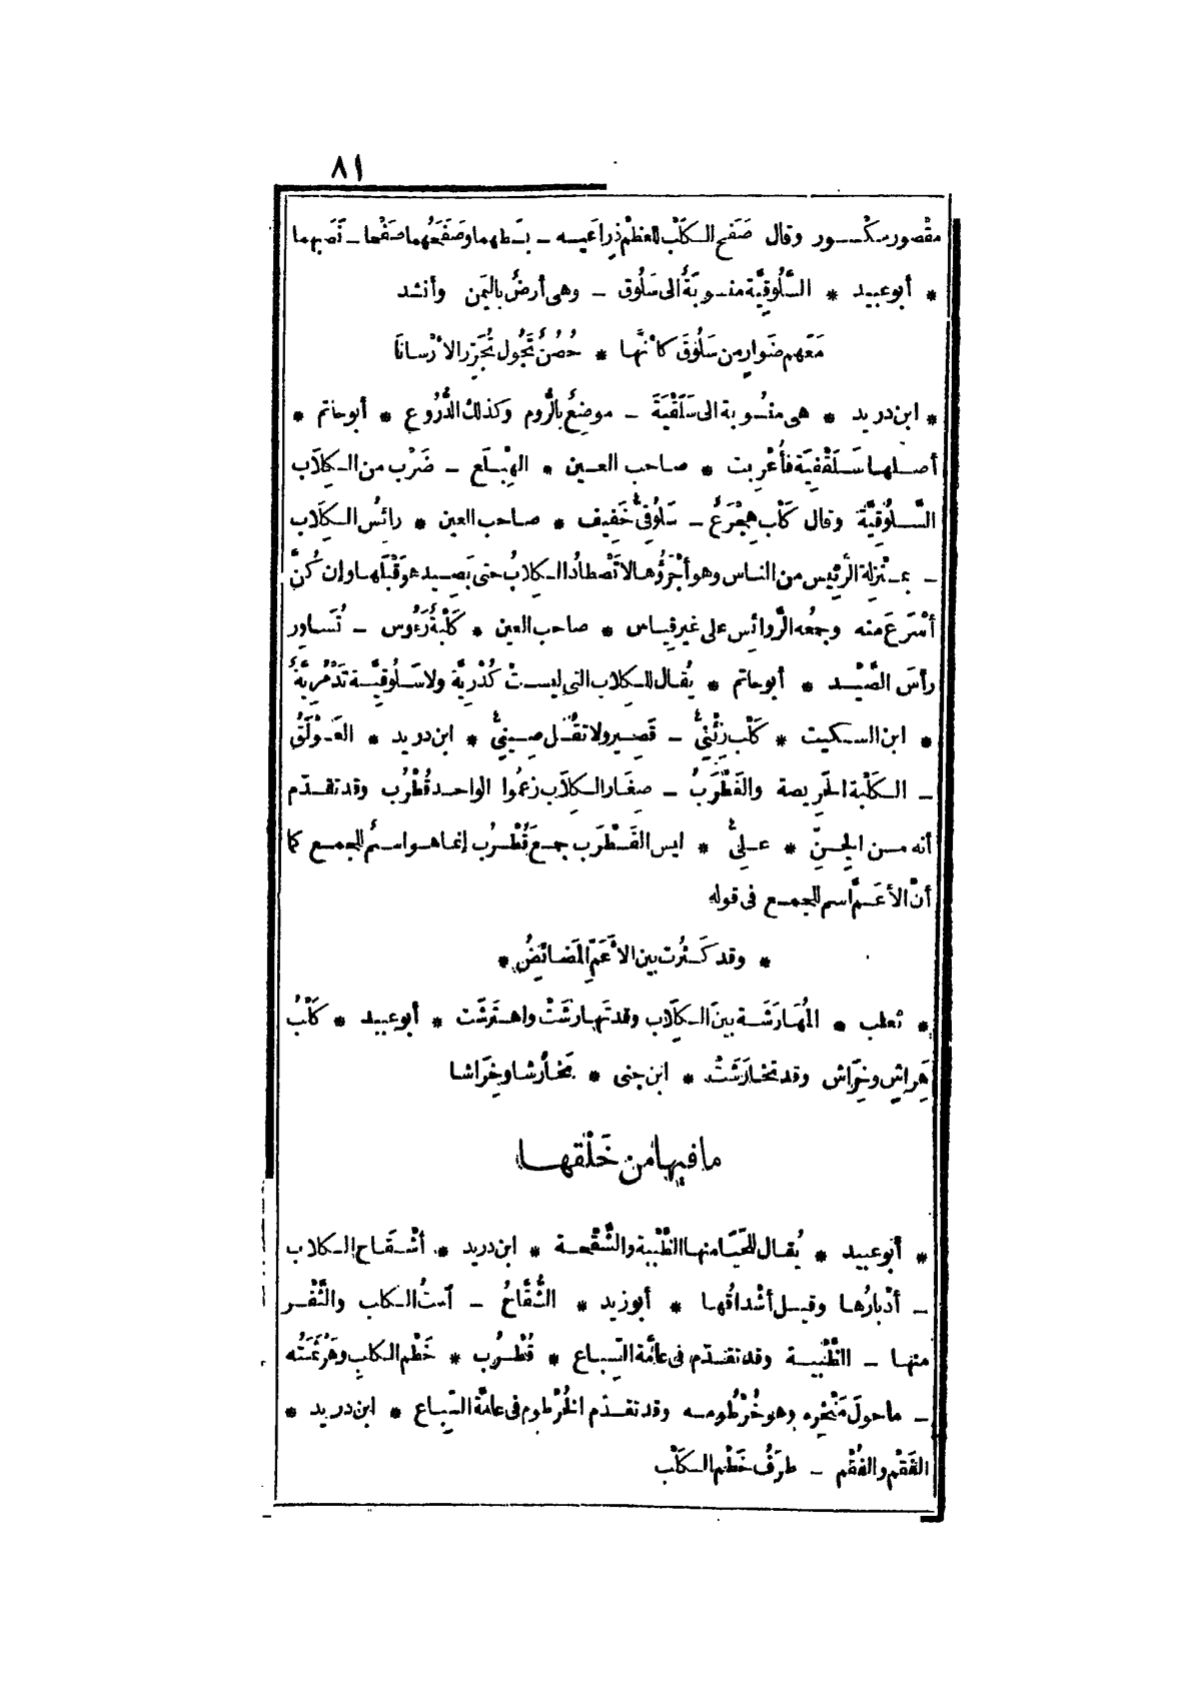 ٨١
مقْصور مكْسور وقال صَفَح الكَلْب للعظْم ذِراعَيه - بسَطهما وصَفَحَهُما صَفْحا - نَصَبهما
* أبو عبيد * السَّلُوقِيَّة منسوبَةٌ الى سَلُوق - وهى أرضٌ باليَمن وأنشد
مَعَهم ضَوارٍ من سَلُوقَ كأنَّها * حُصُنٌ تَجُول تُجَرِّر الأرْسانَا
* ابن دريد * هى منْسُوبة الى سَلَقْيَةَ - موضِعٌ بالرُّوم وكذلك الدُّرُوع * أبو حاتم *
أصلها سَلَقْيَة فأُعْرِبت * صاحب العين * الهِبْلَع - ضَرْب من الكِلَاب
السَّلُوقِيَّة وقال كَلْب هِجْرَعٌ - سَلُوقِىٌّ خَفِيف * صاحب العين * رائسُ الكِلَاب
- بمنْزِلة الرَّئِيس من الناس وهو أجْرَؤُها لا تَصْطادُ الكِلابُ حتى يَصِيد هو قَبْلَها وإن كُنَّ
أسْرَعَ منه وجمعُه الرَّوائس على غير قِياس * صاحب العين * كَلْبة رَءُوس - تُسَاوِر
رأسَ الصَّيْد * أبو حاتم * يُقال للكِلاب التى ليستْ كُدْرِيَّة ولا سَلُوقِيَّة تَدْمُرِيَّةٌ
* ابن السكيت * كَلْب زِئْنِىٌّ - قَصِير ولا تَقُل صِينِىٌّ * ابن دريد * العَوْلَقُ
- الكَلْبة الحَرِيصة والقَطْرَبُ - صِغَار الكِلَاب زعَمُوا الواحد قُطْرُب وقد تقدّم
أنه من الجِنِّ * علىٌّ * ليس القَطْرَب جمعَ قُطْرُب إنما هو اسمٌ للجمع كما
أنّ الأعَمَّ اسم للجمع فى قوله
* وقد كَثُرَت بين الأعَمِّ المَضائضُ *
* ثعلب * المُهَارَشَة بينَ الكِلَاب وقد تَهارشَتْ واهتَرشَتْ * أبو عبيد * كَلْبُ
هِراشٍ وخِرَاش وقد تخَارَشَتْ * ابن جنى * تخارُشا وخِرَاشا
ما فيها من خَلْقها
* أبو عبيد * يُقال للحَيَا منها الظَّبْية والشَّقْحة * ابن دريد * أشْقَاح الكلاب
- أدْبارُها وقيل أشْداقُها * أبو زيد * الشُّقَّاحُ - استُ الكلب والثَّفْر
منها - الظَّبْية وقد تقدّم فى عامَّة السِّباع * قُطْرُب * خَطْم الكلبِ وهَرْثَمَتُه
- ما حولَ مَنْخِره وهو خُرْطُومه وقد تقدّم الخُرْطوم فى عامَّة السِّباع * ابن دريد *
الفَقْم والفُقْم - طرَفُ خَطْم الكَلْب